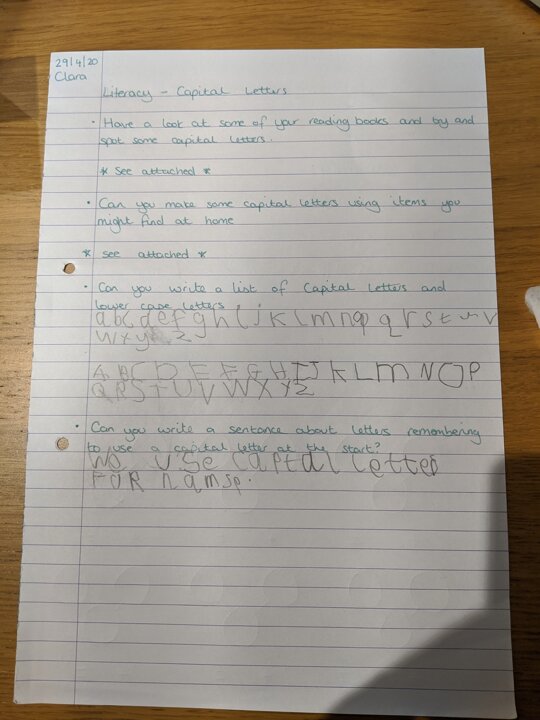 29/4/20
Clara
Literacy - Capital Letters
• Have a look at some of your reading books and try and
spot some capital letters.
* See attached *
• Can you make some capital letters using items you
might find at home
* see attached *
• Can you write a list of Capital Letters and
lower case letters
a b c d e f g h i j k l m n o p q r s t u v
w x y z
A B C D E F G H I J K L M N O P
Q R S T U V W X Y Z
• Can you write a sentence about letters remembering
to use a capital letter at the start?
We use captal letter
FOR namse.